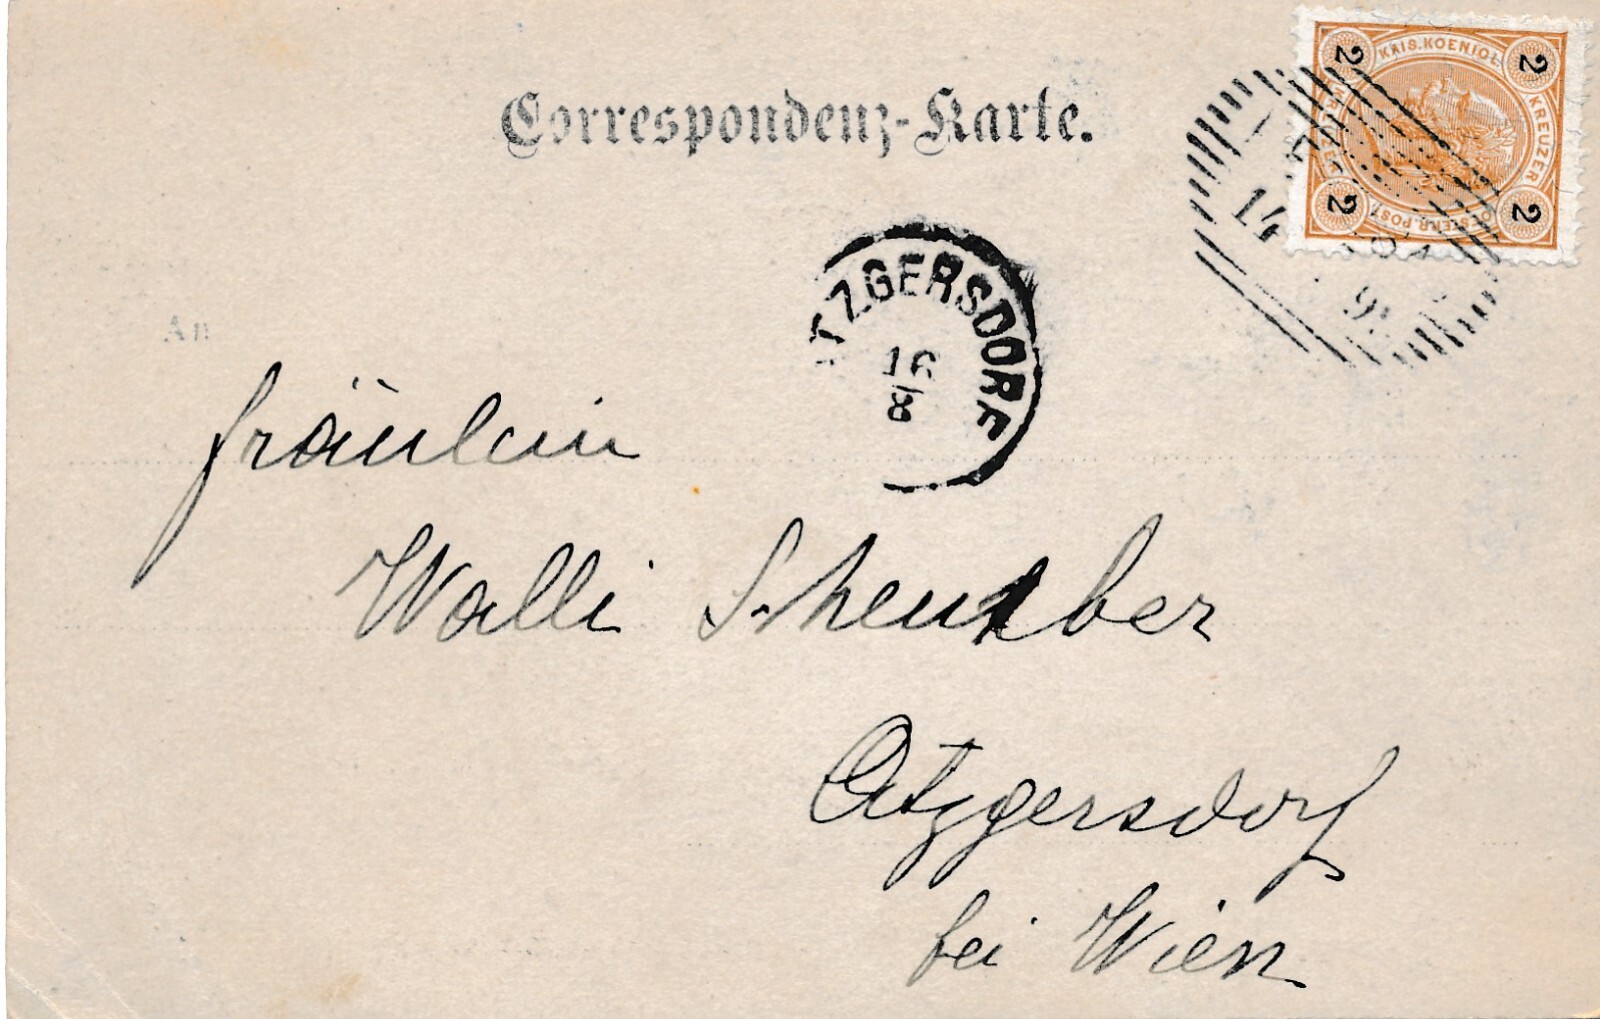 Correspondenz-Karte.
KAIS. KOENIGL.
KREUZER
OESTERR. POST.
KREUZER
2
2
2
2
14
TZGERSDORF
16
8
An
Fräulein
Walli
Atzgersdorf
bei Wien